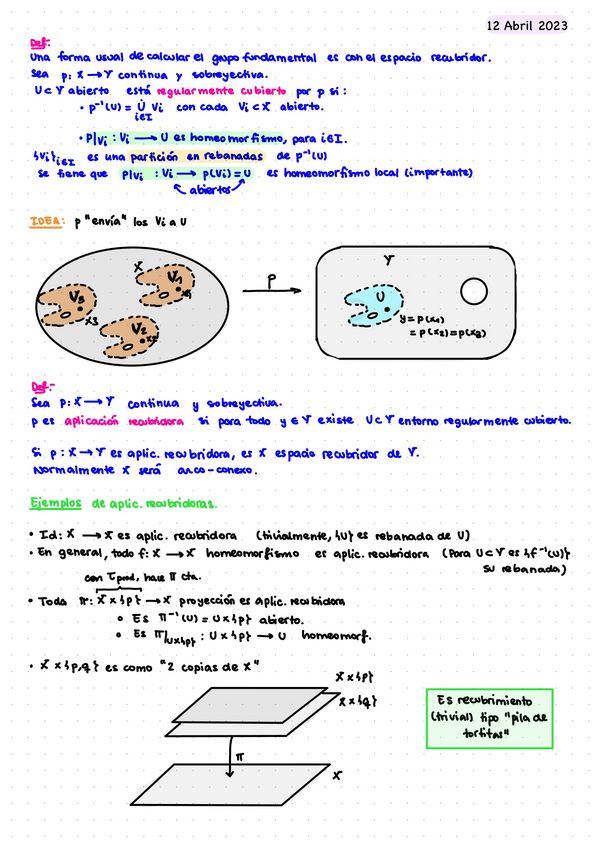 12 Abril 2023
Def:
Una forma usual de calcular el grupo fundamental es con el espacio recubridor.
Sea p: X → Y continua y sobreyectiva.
U ⊂ Y abierto está regularmente cubierto por p si:
• p⁻¹(U) = ∪̇ Vi con cada Vi ⊂ X abierto.
i∈I
• p|Vi : Vi → U es homeomorfismo, para i∈I.
{Vi}i∈I es una partición en rebanadas de p⁻¹(U)
Se tiene que p|Vi : Vi → p(Vi) = U es homeomorfismo local (importante)
abiertos
IDEA: p "envía" los Vi a U
X
V1
x1
V3
x3
V2
x2
P
Y
U
y = p(x1)
= p(x2) = p(x3)
Def:
Sea p: X → Y continua y sobreyectiva.
p es aplicación recubridora si para todo y ∈ Y existe U ⊂ Y entorno regularmente cubierto.
Si p: X → Y es aplic. recubridora, es X espacio recubridor de Y.
Normalmente X será arco-conexo.
Ejemplos de aplic. recubridoras.
• Id: X → X es aplic. recubridora (trivialmente, {U} es rebanada de U)
• En general, todo f: X → X homeomorfismo es aplic. recubridora (Para U ⊂ Y es {f⁻¹(U)}
su rebanada)
con τprod, hace π cta.
• Toda π: X × {p} → X proyección es aplic. recubridora
o Es π⁻¹(U) = U × {p} abierto.
o Es π|U×{p} : U × {p} → U homeomorf.
• X × {p,q} es como "2 copias de X"
X × {p}
X × {q}
π
X
Es recubrimiento
(trivial) tipo "pila de
tortitas"